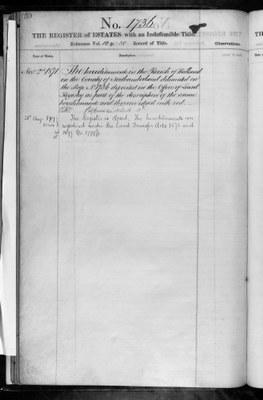 No. 1736
THE REGISTER of ESTATES with an Indefeasible Title.
Reference Vol. p. Record of Title.
Observations.
Date.
Description.
Nov 2nd 1871
The hereditaments in the Parish of
in the County of Northumberland delineated in
the Map No 1736 deposited in the Office of Land
Registry as part of the description of the same
hereditaments and thereon edged with red
28 Aug 1897
The Register is closed. The hereditaments are
registered under the Land Transfer Acts 1875 and